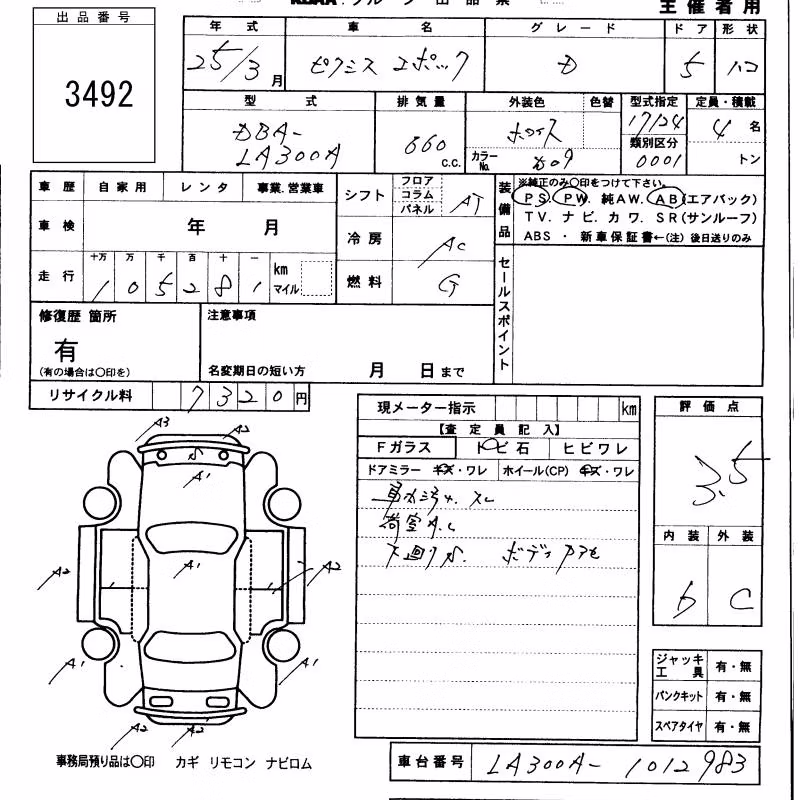 主催者用
出品番号
3492
年式 車名 グレード ドア 形状
25/3月 ピクシス エポック D 5 ハコ
型式 排気量 外装色 色替 型式指定 定員・積載
DBA- 17124 4名
LA300A 660 c.c. ホワイト 類別区分
カラーNo. 0001 トン
車歴 自家用 レンタ 事業.営業車
シフト フロア コラム パネル AT
装備品
※純正のみ○印をつけて下さい。
PS. PW. 純AW. AB(エアバック)
TV. ナビ. カワ. SR(サンルーフ)
ABS ・ 新車保証書←(注) 後日送りのみ
車検 年 月
冷房 AC
走行 十万 万 千 百 十 一
105281 km マイル
燃料 G
セールスポイント
修復歴 箇所
有
(有の場合は○印を)
注意事項
名変期日の短い方 月 日まで
リサイクル料 7320円
現メーター指示 km
【査定員記入】
Fガラス トビ石 ヒビワレ
ドアミラー キズ・ワレ ホイール(CP) キズ・ワレ
荷室A.C
評価点
3.5
内装 外装
b C
A3 A2
A1
A1
A2 A2
A1 A1
A2 A2
ジャッキ工具 有・無
パンクキット 有・無
スペアタイヤ 有・無
事務局預り品は○印 カギ リモコン ナビロム
車台番号 LA300A- 1012983